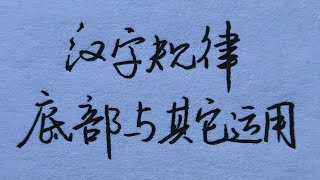 汉字规律
底部与其它运用